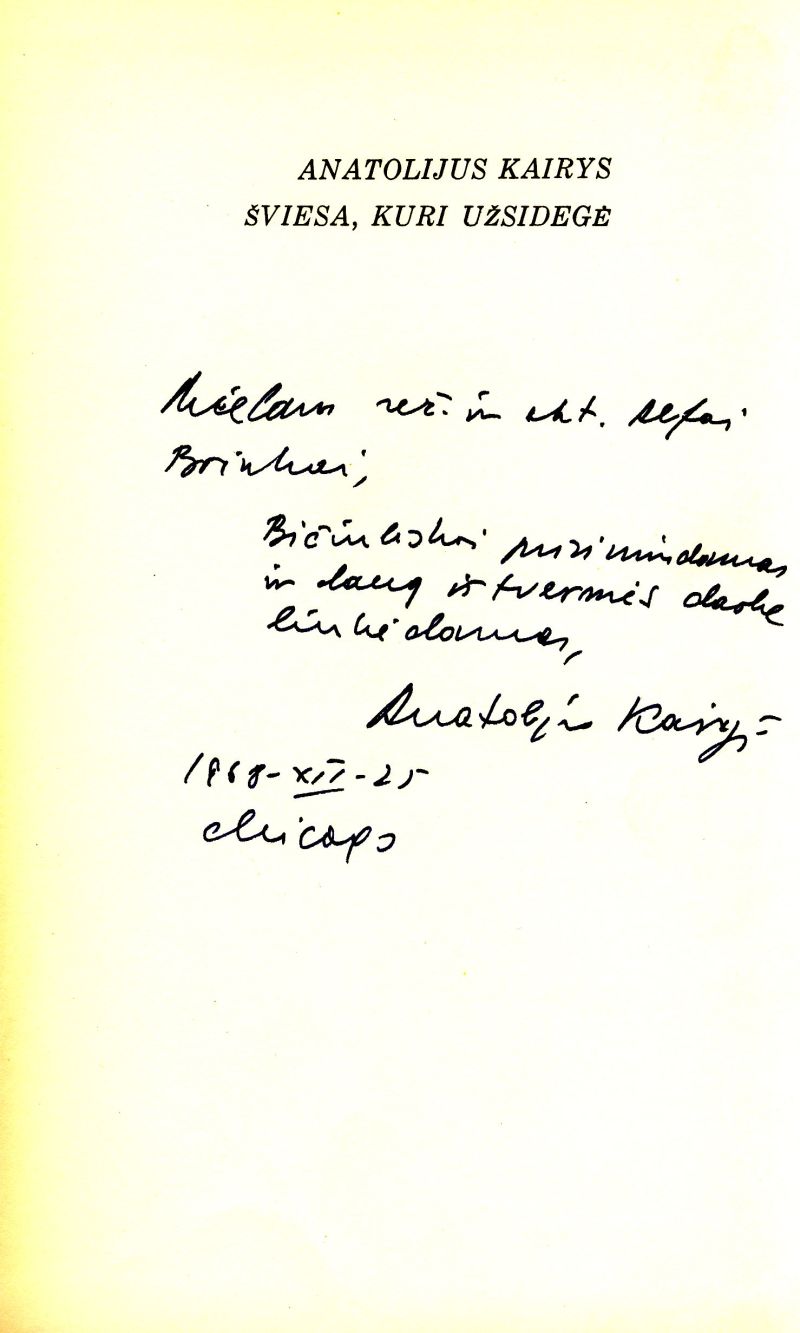 ANATOLIJUS KAIRYS
ŠVIESA, KURI UŽSIDEGĖ
Mielam rež. ir akt. Alfai
Brinkai,
Bičiuliškai prisimindamas
ir daug ištvermės darbe
linkėdamas,
Anatolijus Kairys
1968-XII-25
Chicago